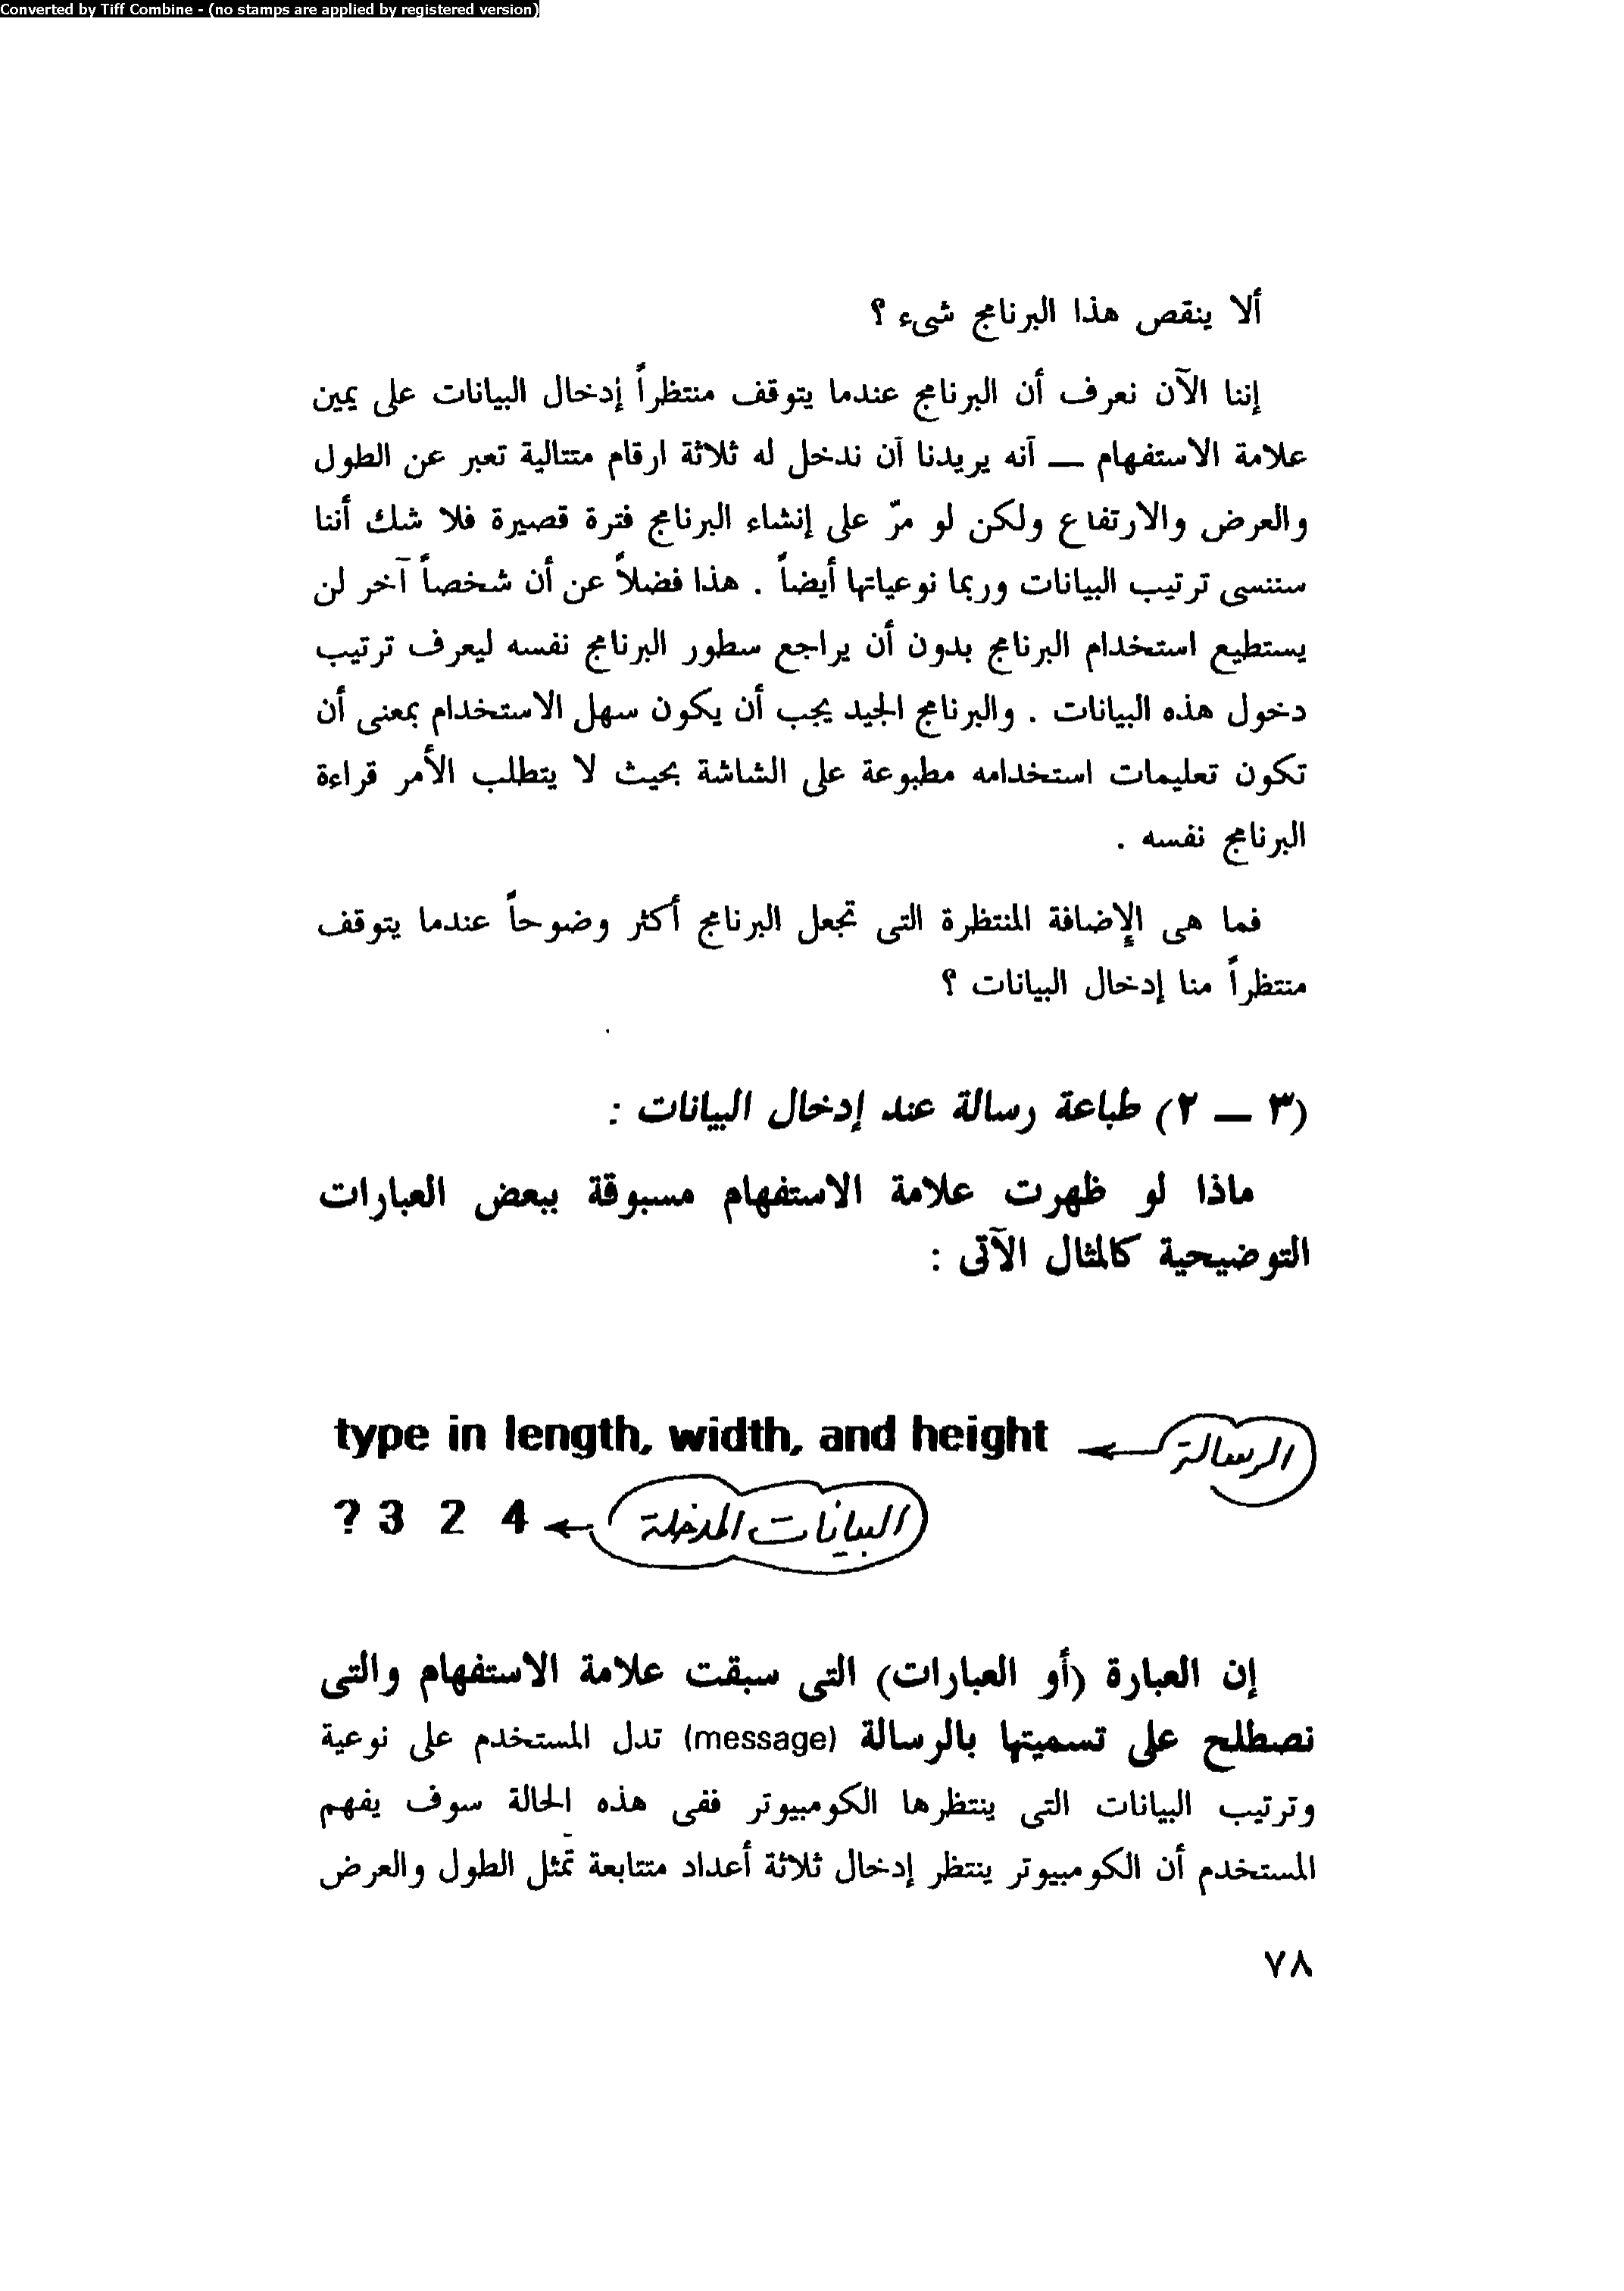 Converted by Tiff Combine - (no stamps are applied by registered version)
ألا ينقص هذا البرنامج شىء ؟
إننا الآن نعرف أن البرنامج عندما يتوقف منتظراً إدخال البيانات على يمين
علامة الاستفهام — أنه يريدنا أن ندخل له ثلاثة ارقام متتالية تعبر عن الطول
والعرض والارتفاع ولكن لو مرّ على إنشاء البرنامج فترة قصيرة فلا شك أننا
سننسى ترتيب البيانات وربما نوعياتها أيضاً . هذا فضلاً عن أن شخصاً آخر لن
يستطيع استخدام البرنامج بدون أن يراجع سطور البرنامج نفسه ليعرف ترتيب
دخول هذه البيانات . والبرنامج الجيد يجب أن يكون سهل الاستخدام بمعنى أن
تكون تعليمات استخدامه مطبوعة على الشاشة بحيث لا يتطلب الأمر قراءة
البرنامج نفسه .
فما هى الإضافة المنتظرة التى تجعل البرنامج أكثر وضوحاً عندما يتوقف
منتظراً منا إدخال البيانات ؟
(٣ — ٢) طباعة رسالة عند إدخال البيانات :
ماذا لو ظهرت علامة الاستفهام مسبوقة ببعض العبارات
التوضيحية كالمثال الآتى :
type in length, width, and height الرسالة
? 3 2 4 البيانات المدخلة
إن العبارة (أو العبارات) التى سبقت علامة الاستفهام والتى
نصطلح على تسميتها بالرسالة (message) تدل المستخدم على نوعية
وترتيب البيانات التى ينتظرها الكومبيوتر ففى هذه الحالة سوف يفهم
المستخدم أن الكومبيوتر ينتظر إدخال ثلاثة أعداد متتابعة تمثل الطول والعرض
٧٨